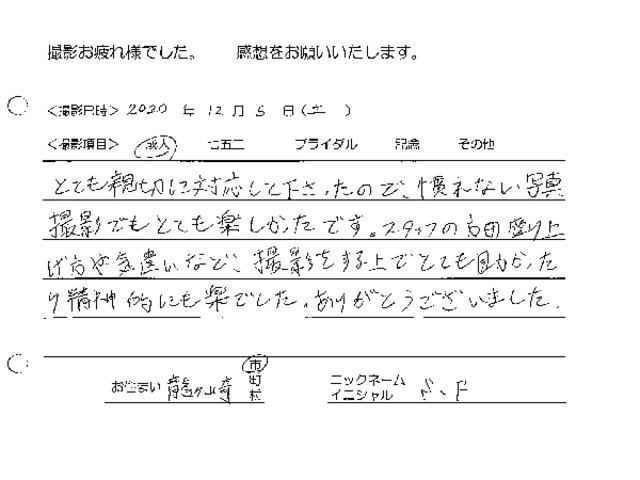 撮影お疲れ様でした。 感想をお願いいたします。
<撮影日時> 2020 年 12 月 5 日(土)
<撮影項目> 成人 七五三 ブライダル 記念 その他
とても親切に対応して下さったので、慣れない写真
撮影でもとても楽しかたです。スタッフの方の盛り上
げ方や気遣いなど、撮影をする上でとても助かった
り精神的にも楽でした。ありがとうございました。
お住まい 龍ヶ崎 市
町
村
ニックネーム
イニシャル F